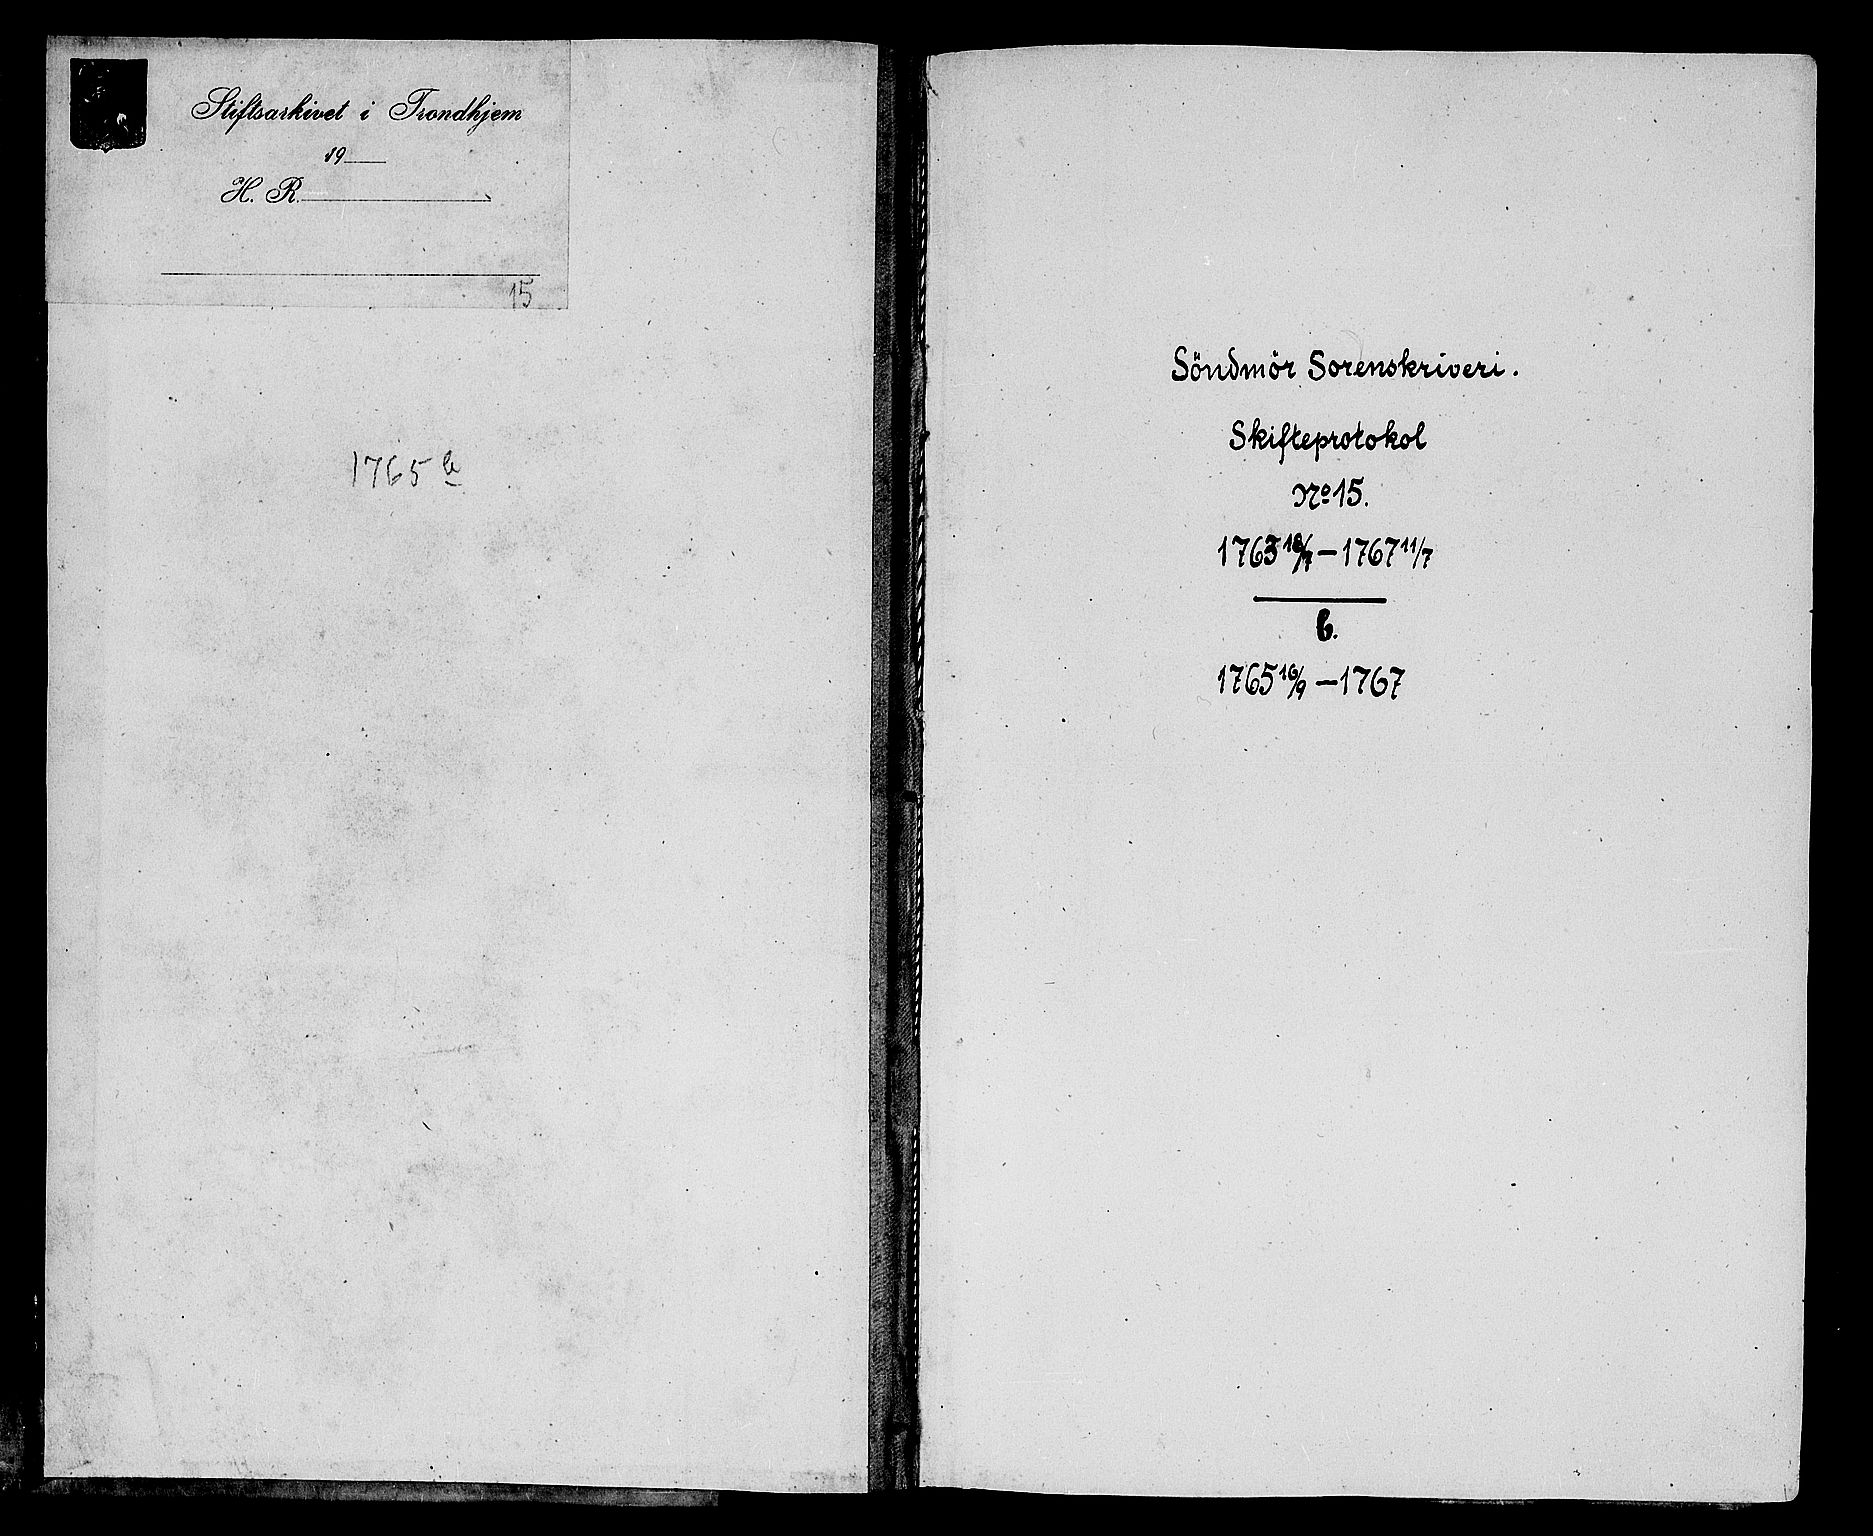 Stiftsarkivet i Trondhjem
19
H. R.
15
1765 b
Söndmör Sorenskriveri.
Skifteprotokol
No 15.
1763 18/7 – 1767 11/7
b.
1765 16/9 – 1767